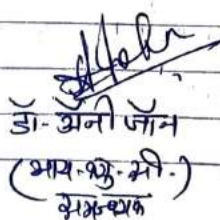 डॉ- अ‍ॅनी जॉन
(आय-क्यु-सी-)
समन्वयक